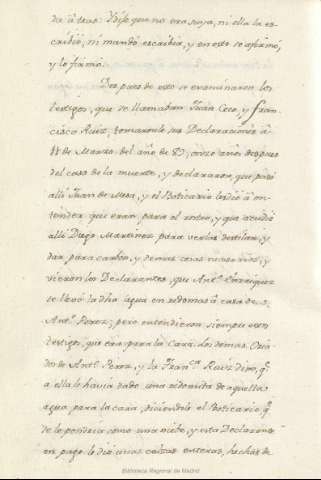 dia à tras: Y dijo que no era suya, ni ella la es-
cribió, ni mandó escribir, y en esto se afirmó,
y lo firmó.
Des pues de esto se examinaron los
testigos, que se llamaban Juan Coco, y Fran-
cisco Ruiz, tomaronle sus Declaraciones à
11 de Marzo del año de 89, onze años despues
del caso de la muerte, y declararon, que pasó
alli Juan de Mesa, y el Boticario les dió à en-
tender que eran para el rostro, y que acudió
alli Diego Martinez para verlas destilar, y
dar para carbon, y demas cosas necesarias, y
vieron los Declarantes, que Antº. Enriquez
se llevó la dha agua en redomas à casa de
Antº. Perez; pero entendieron siempre estos
testigos, que era para la Cara de los demas Cria-
dos de Antº. Perez, y la Fran.ca Ruiz dijo, q.e
à ella le havia dado una redomita de aquella
agua para la cara, diciendole el Boticario q.e
se le pondria como una nieve, y esta Declarante
en pago le dio unas calzas enteras, hechas de
Biblioteca Regional de Madrid